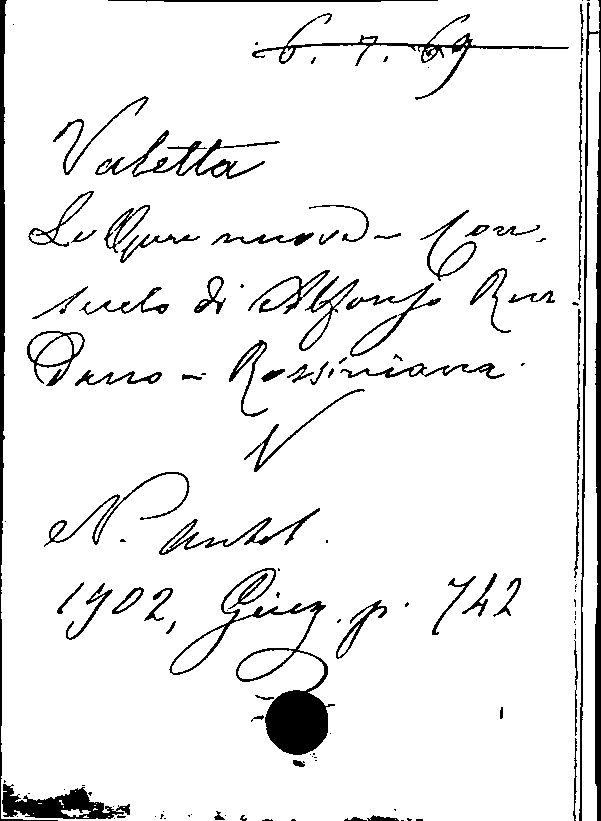 6. 7. 69
Valetta
Le Opere nuove - Con-
suelo di Alfonso Ren-
dano - Rossiniana.
N. Antol.
1902, Giug. p. 742